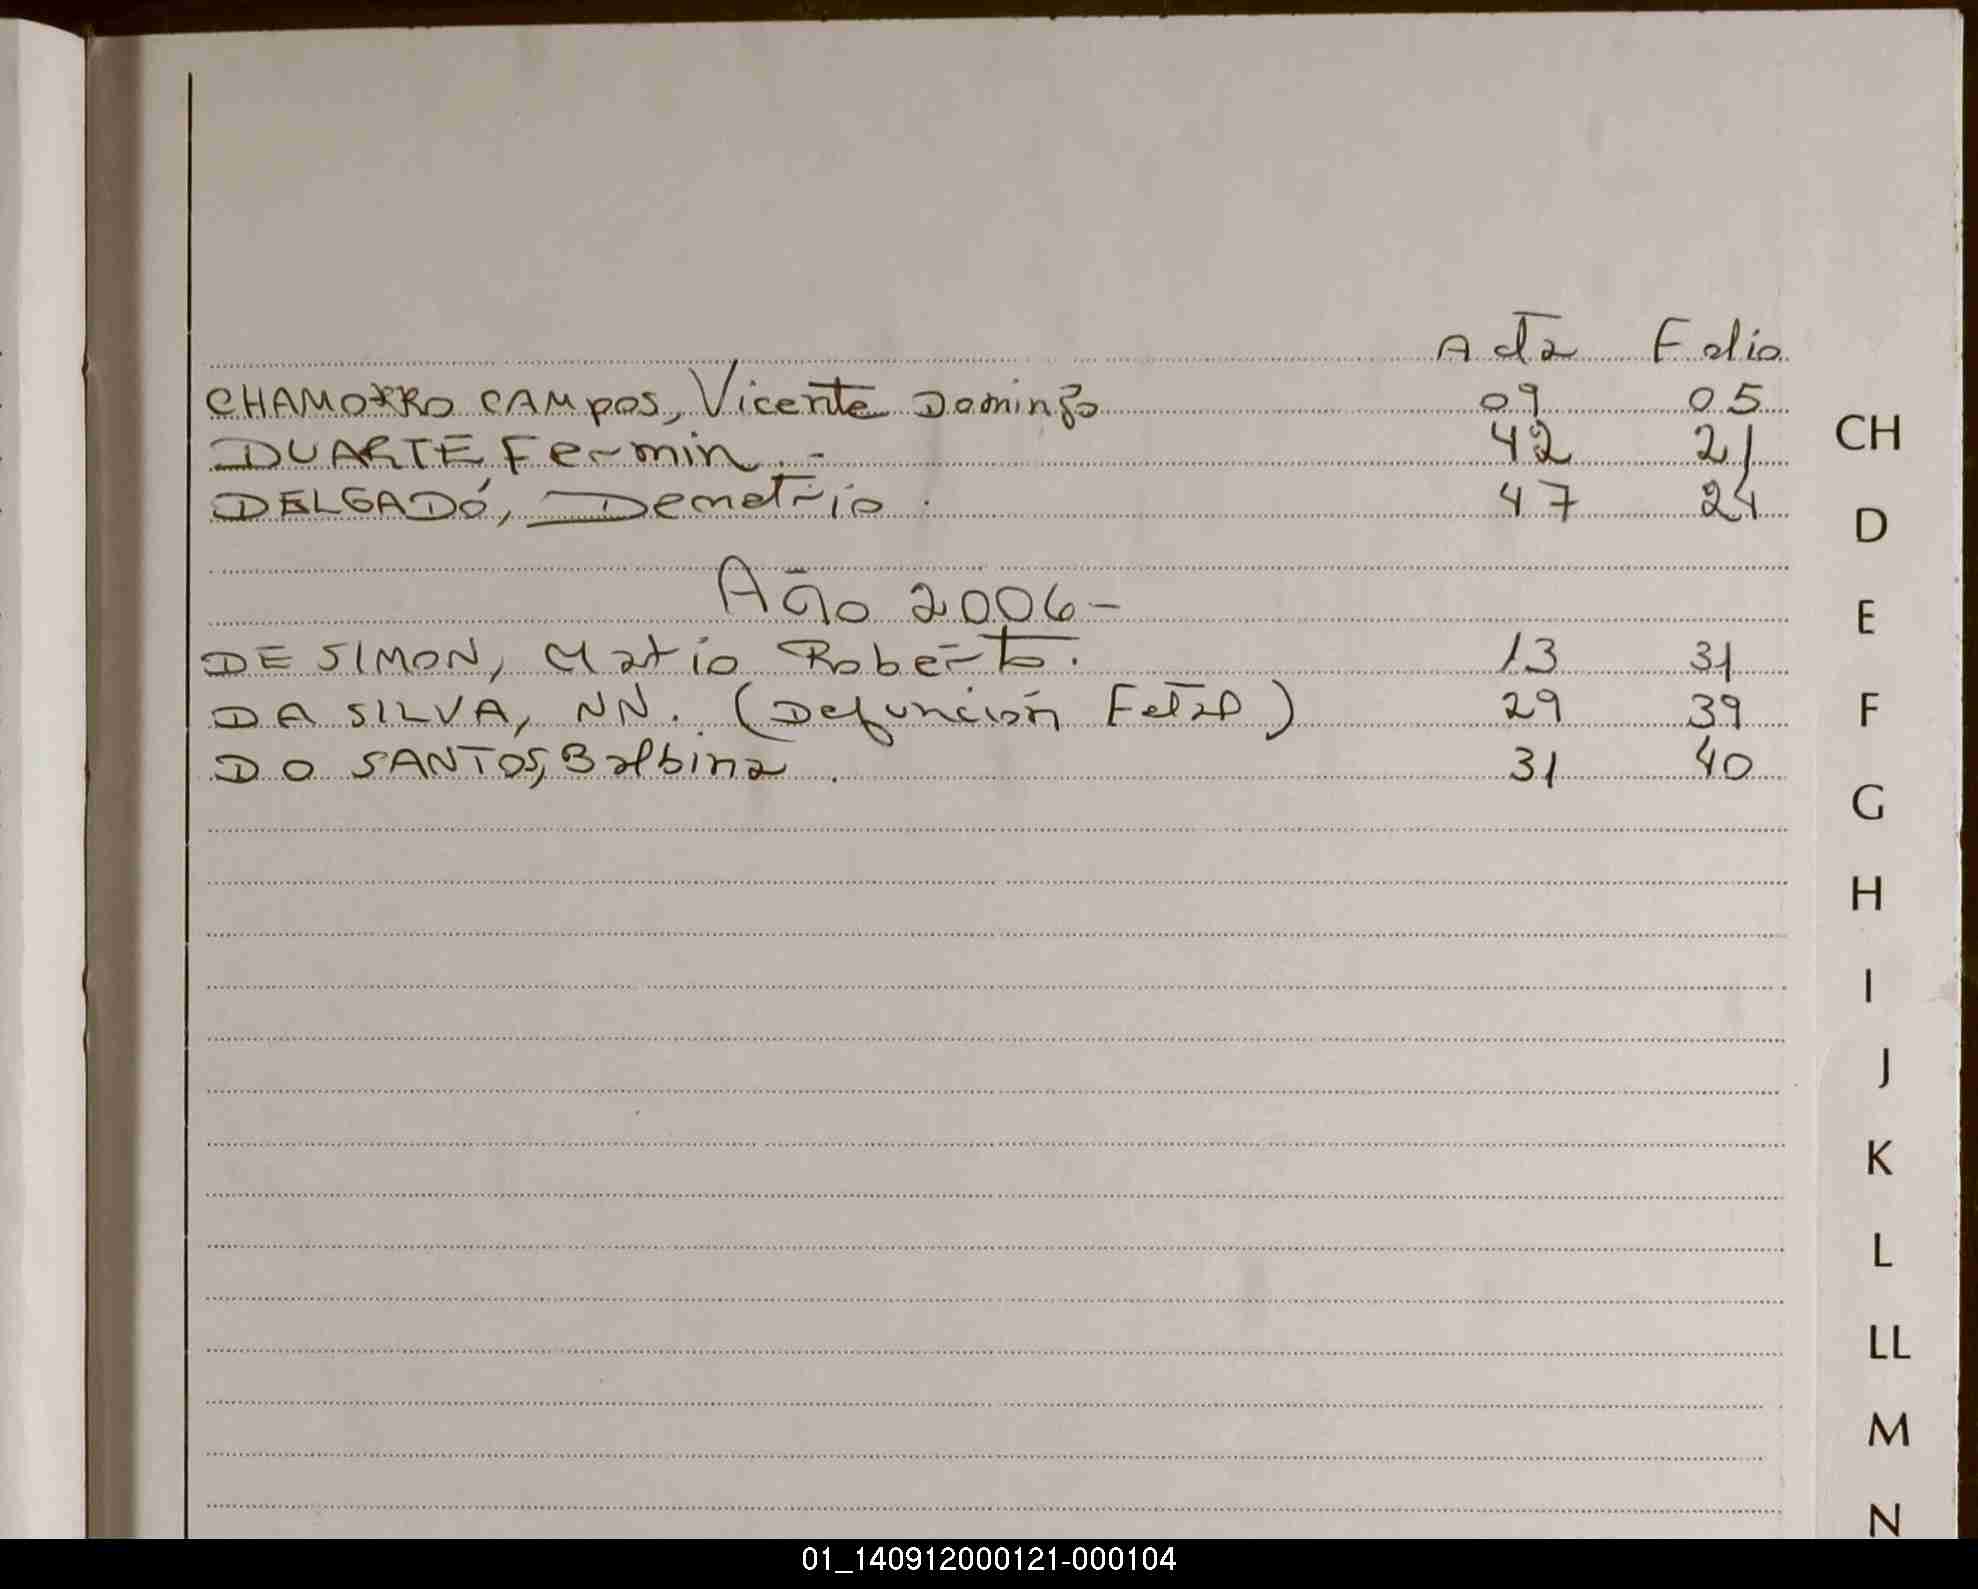 Acta Folio
CHAMORRO CAMPOS, Vicente Domingo 09 05
DUARTE, Fermin.- 42 21
DELGADO, Demetrio. 47 24
Año 2006-
DE SIMON, Mario Roberto. 13 31
DA SILVA, NN. (Defunción Fetal) 29 39
DO SANTOS, Balbina. 31 40
CH
D
E
F
G
H
I
J
K
L
LL
M
N
01_140912000121-000104